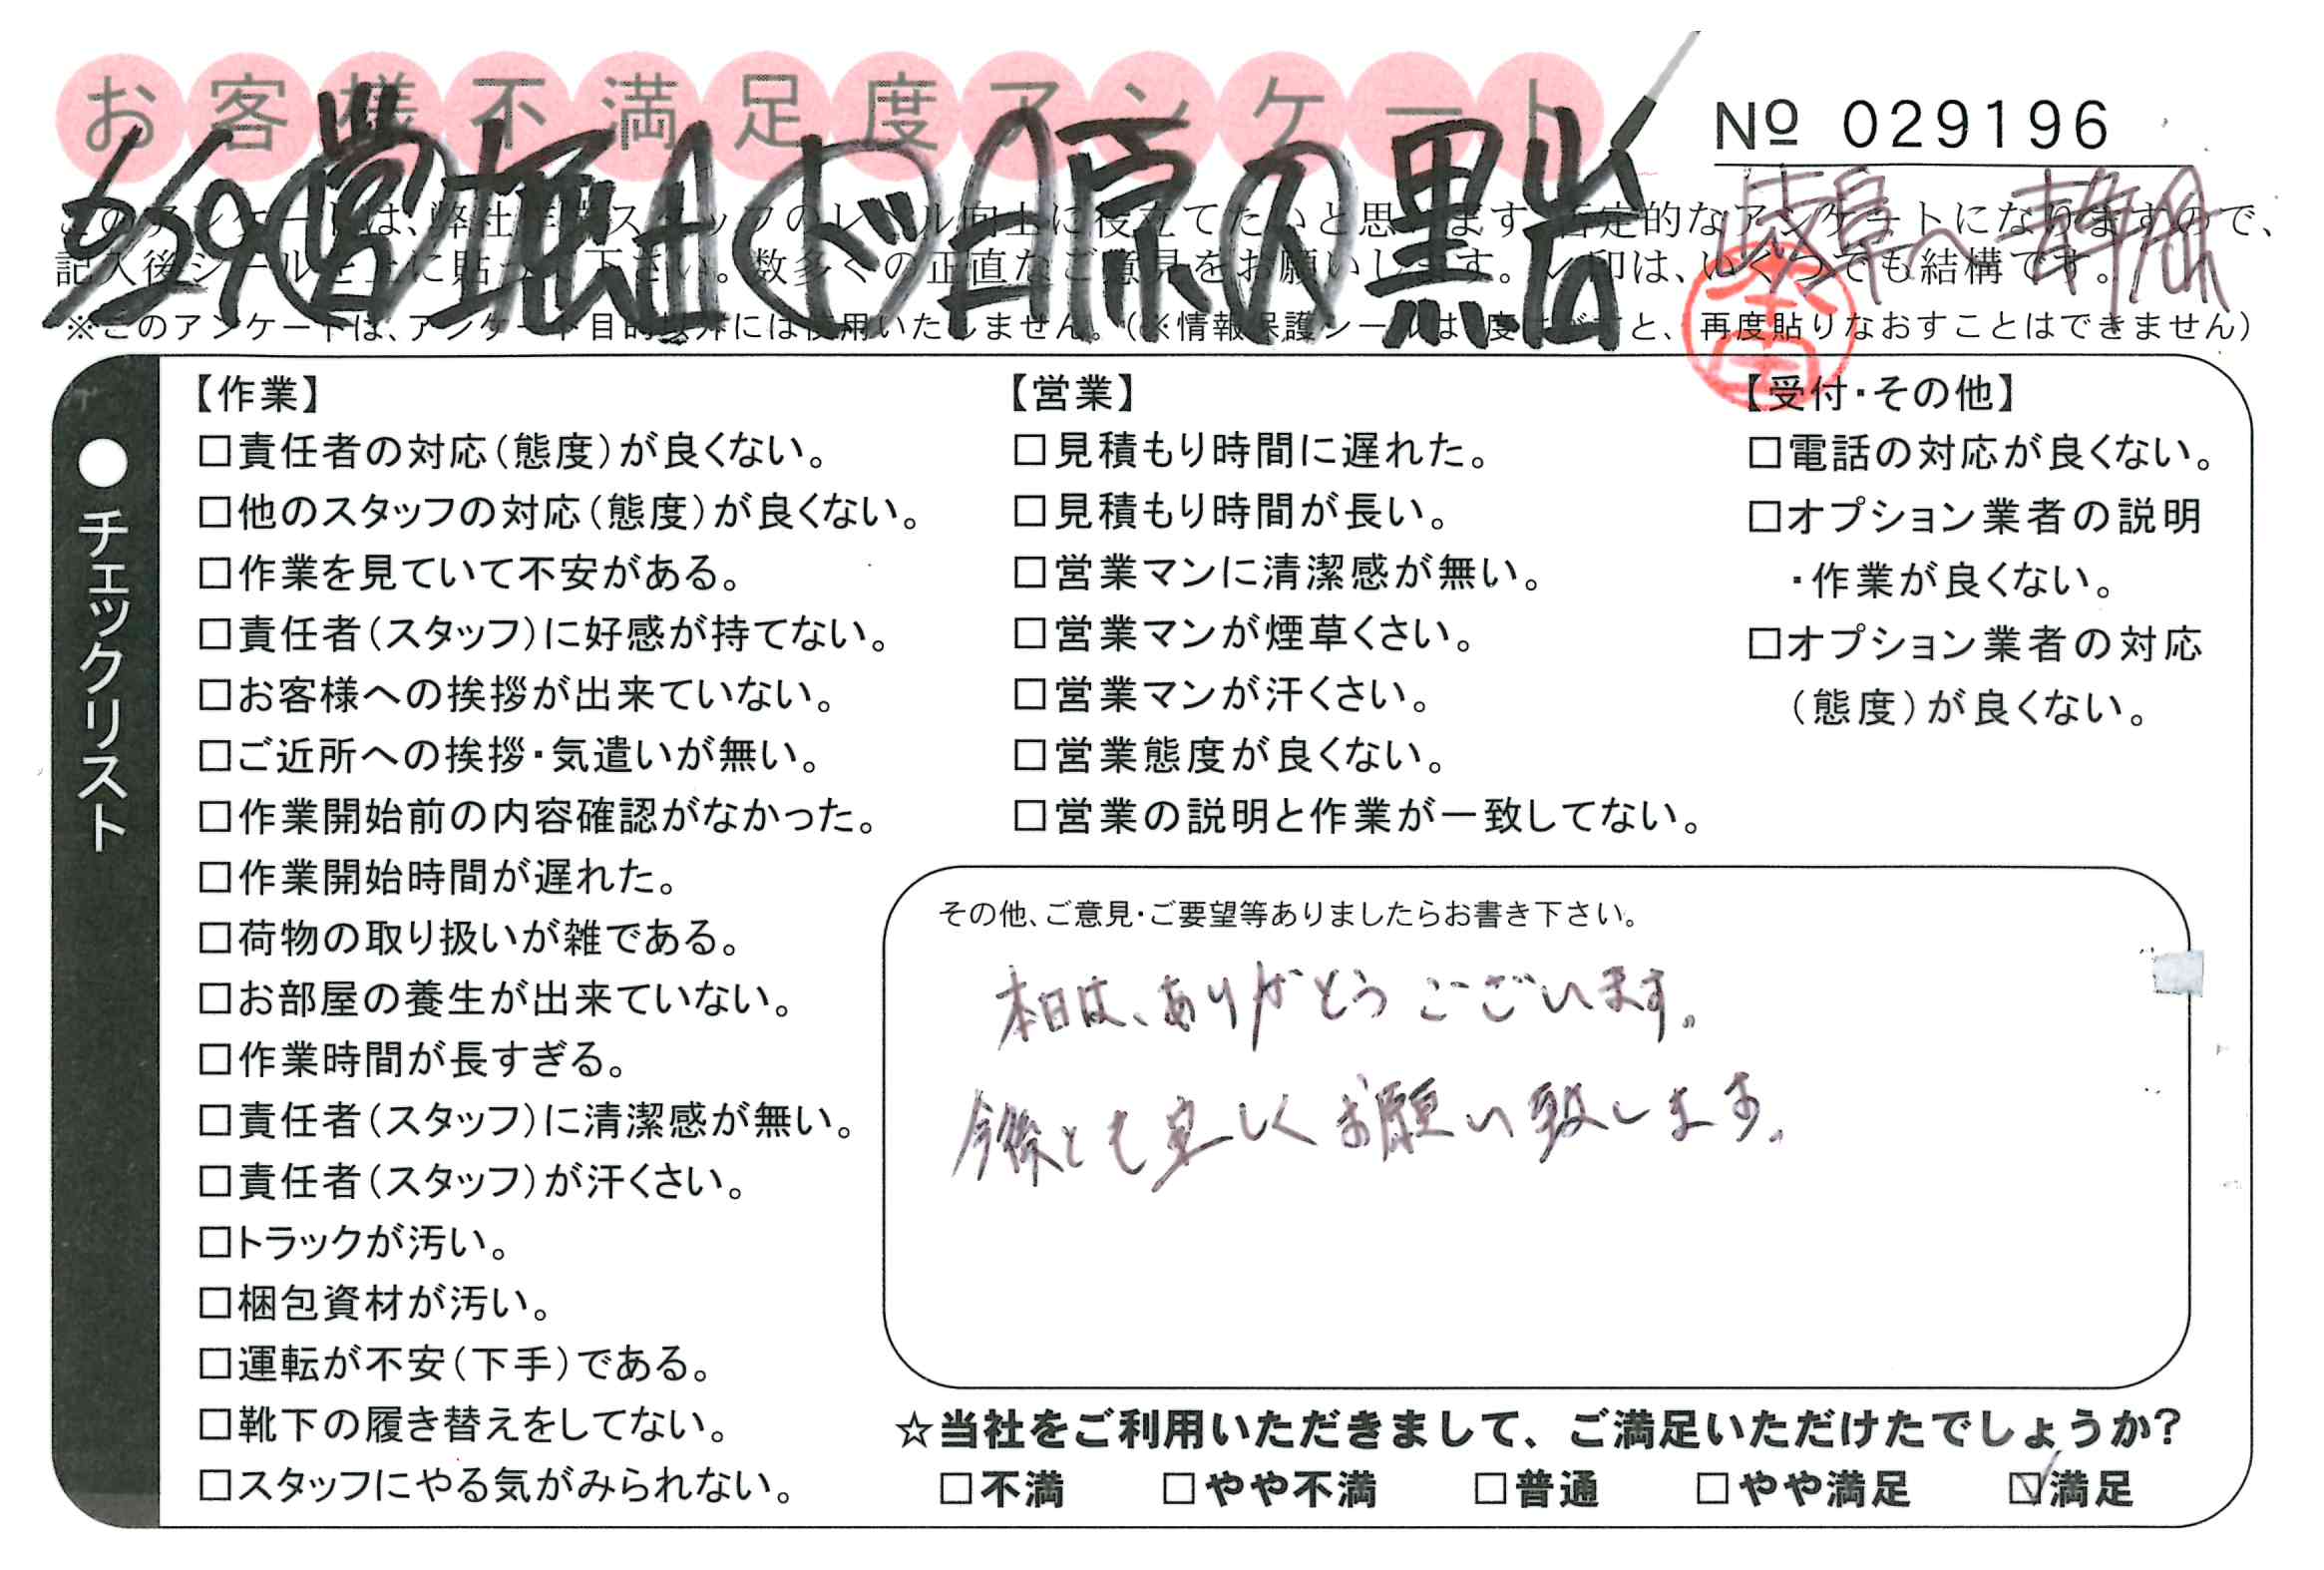 お客様不満足度アンケート
№ 029196
6/29 営 堀 ド 原 黒岩
岐阜へ 静岡
このアンケートは、弊社 スタッフのレベル向上に役立てたいと思います 否定的なアンケートになりますので、
記入後シールを上に貼って下さい。数多くの正直なご意見をお願いします。レ印は、いくつでも結構です。
※このアンケートは、アンケート目的以外には使用いたしません。(※情報保護シールは1度はがすと、再度貼りなおすことはできません)
●チェックリスト
【作業】
□責任者の対応(態度)が良くない。
□他のスタッフの対応(態度)が良くない。
□作業を見ていて不安がある。
□責任者(スタッフ)に好感が持てない。
□お客様への挨拶が出来ていない。
□ご近所への挨拶・気遣いが無い。
□作業開始前の内容確認がなかった。
□作業開始時間が遅れた。
□荷物の取り扱いが雑である。
□お部屋の養生が出来ていない。
□作業時間が長すぎる。
□責任者(スタッフ)に清潔感が無い。
□責任者(スタッフ)が汗くさい。
□トラックが汚い。
□梱包資材が汚い。
□運転が不安(下手)である。
□靴下の履き替えをしてない。
□スタッフにやる気がみられない。
【営業】
□見積もり時間に遅れた。
□見積もり時間が長い。
□営業マンに清潔感が無い。
□営業マンが煙草くさい。
□営業マンが汗くさい。
□営業態度が良くない。
□営業の説明と作業が一致してない。
【受付・その他】
□電話の対応が良くない。
□オプション業者の説明
・作業が良くない。
□オプション業者の対応
(態度)が良くない。
その他、ご意見・ご要望等ありましたらお書き下さい。
本日は、ありがとうございます。
今後とも宜しくお願い致します。
☆当社をご利用いただきまして、ご満足いただけたでしょうか?
□不満 □やや不満 □普通 □やや満足 ☑満足